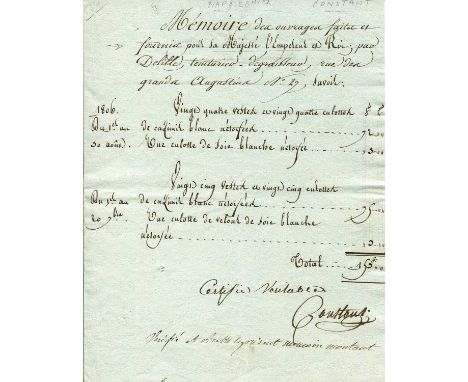 NAPOLEON CONSTANT
Mémoire des ouvrages faits et
fournis pour sa Majesté l'Empereur et Roi, par
Delille, teinturier-degraisseur, rue des
grands Augustins N° 27, Savoir:
1806. Vingt quatre vestes et vingt quatre culottes
Du 1er au de casimir blanc nétoyées 72.00
30 août. Une culotte de soie blanche nétoyée 3.00
Vingt cinq vestes et vingt cinq culottes
Du 1er au de casimir blanc nétoyées 75.00
20 bre. Une culotte de velours de soie blanche
nétoyée 3.00
Total 153.00
Certifié Véritable
Constant
Vérifié